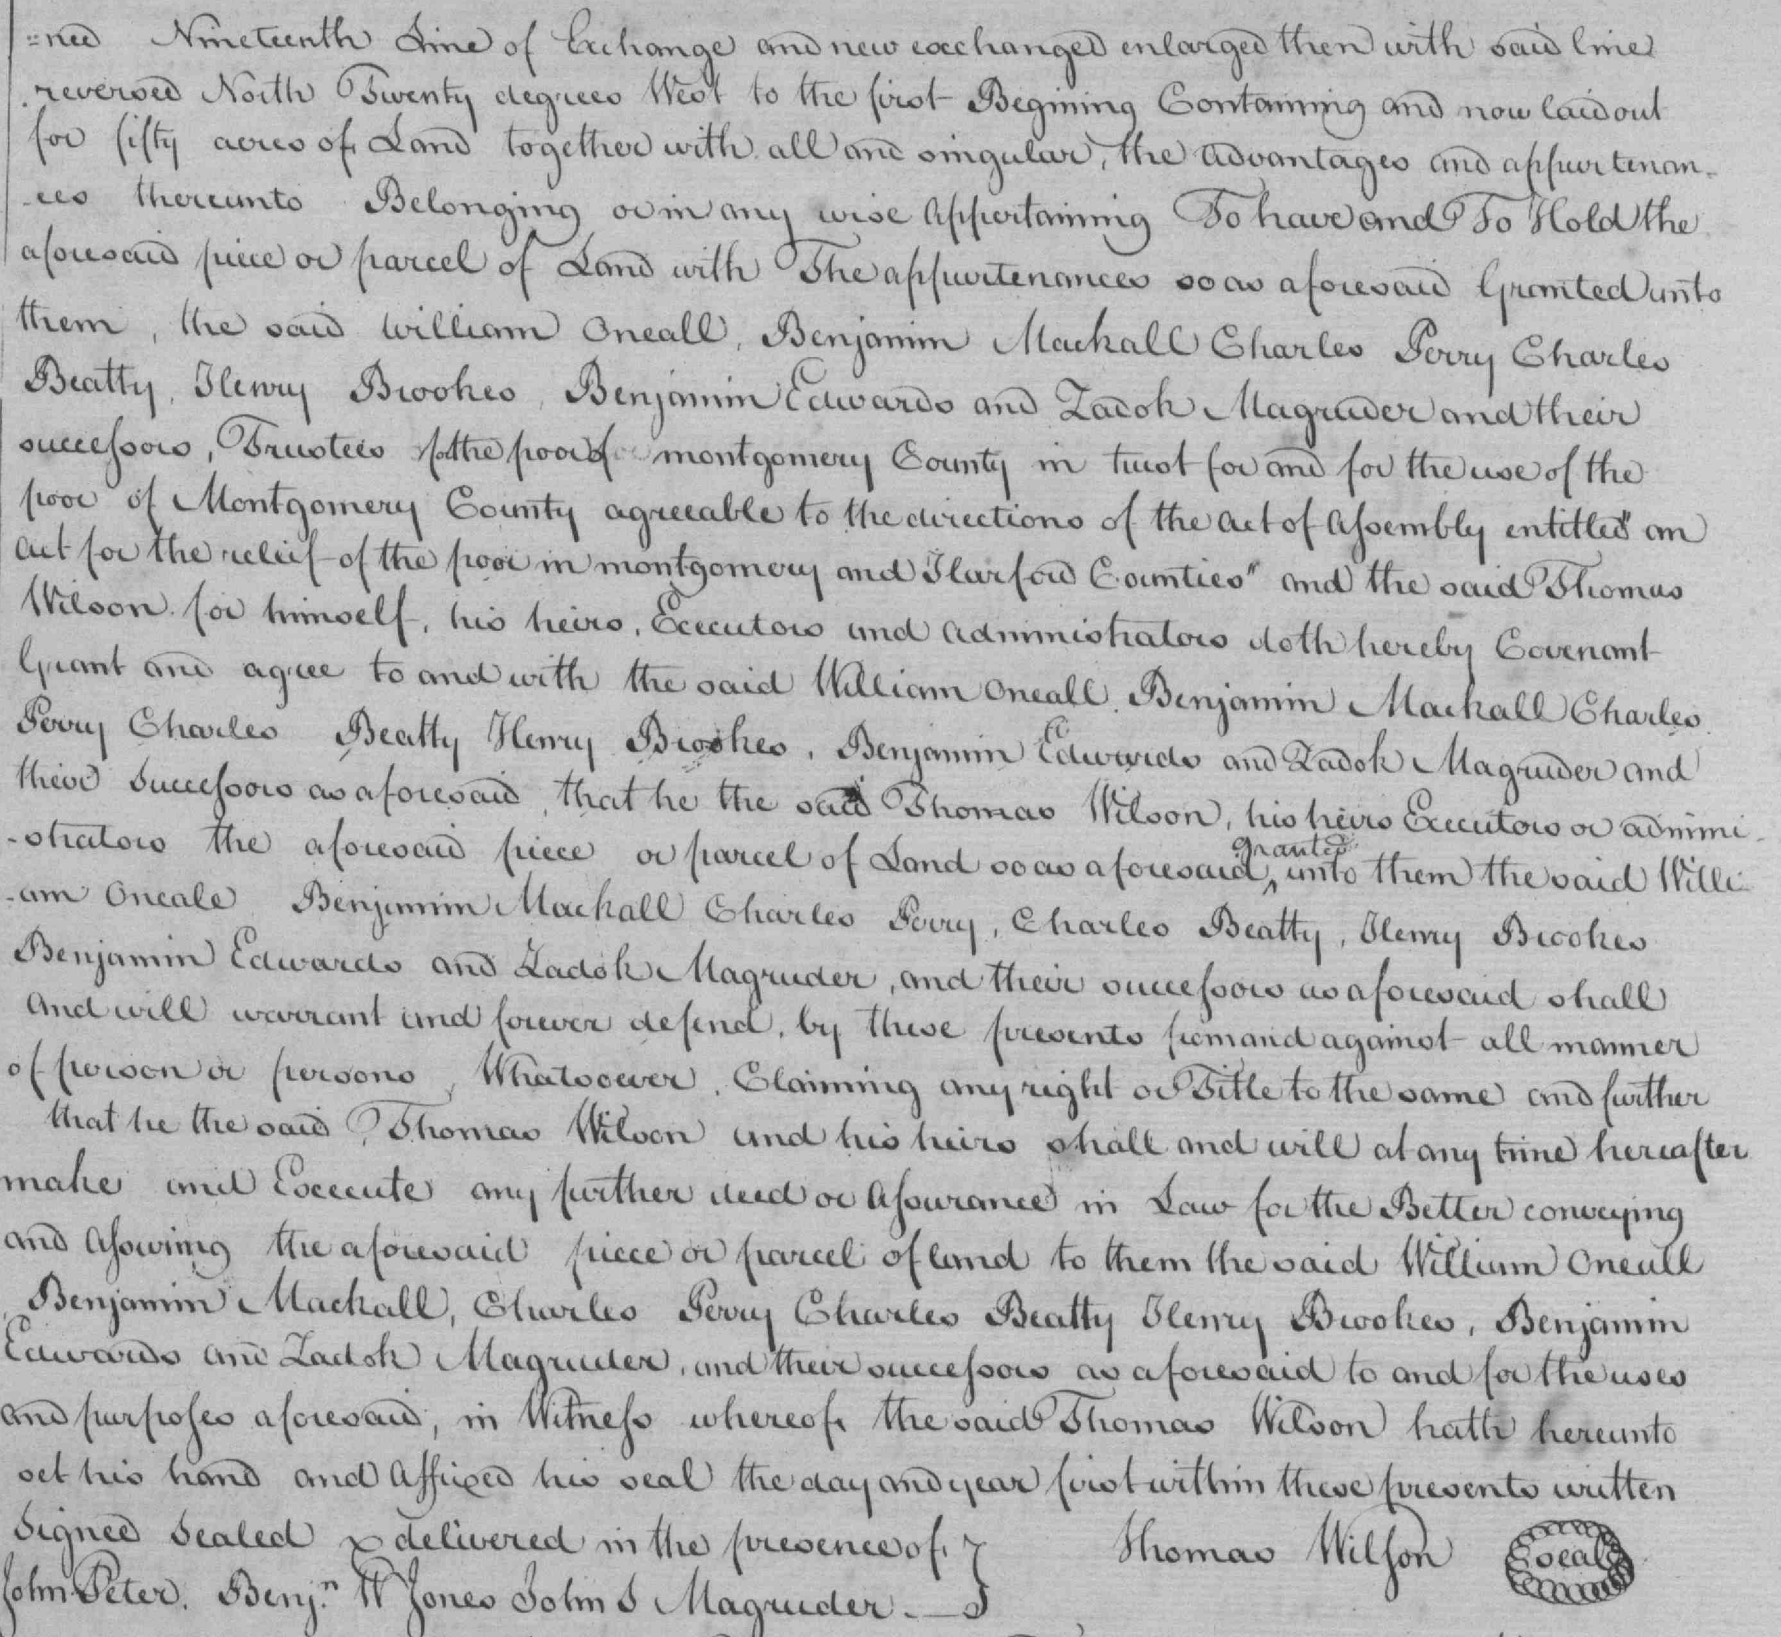 =ned Nineteenth Line of Exchange and new exchanged enlarged then with said line
reversed North Twenty degrees West to the first Begining Containing and now laid out
for fifty acres of Land together with all and singular, the advantages and appurtenan-
-ces thereunto Belonging or in any wise Appertaining To have and To Hold the
aforesaid piece or parcel of Land with The appurtenances so as aforesaid Granted unto
them, the said William Oneall, Benjamin Mackall Charles Perry Charles
Beatty, Henry Brookes, Benjamin Edwards and Zadok Magruder and their
successors, Trustees for the poor of montgomery County in trust for and for the use of the
poor of Montgomery County agreeable to the directions of the act of Assembly entitled "an
act for the relief of the poor in montgomery and Harford Counties" and the said Thomas
Wilson for himself, his heirs, Executors and administrators doth hereby Covenant
Grant and agree to and with the said William Oneall, Benjamin Mackall Charles
Perry Charles Beatty Henry Brookes, Benjamin Edwards and Zadok Magruder and
their Successors as aforesaid, that he the said Thomas Wilson, his heirs Executors or admini-
-strators the aforesaid piece or parcel of Land so as aforesaid ^granted unto them the said Willi-
-am Oneale Benjamin Mackall Charles Perry, Charles Beatty, Henry Brookes
Benjamin Edwards and Zadok Magruder, and their successors as aforesaid shall
And will warrant and forever defend, by these presents from and against all manner
of person or persons, Whatsoever, Claiming any right or Title to the same and further
that he the said Thomas Wilson and his heirs shall and will at any time hereafter
make and Execute any further deed or Assurance in Law for the Better conveying
and Assuring the aforesaid piece or parcel of land to them the said William Oneall
Benjamin Mackall, Charles Perry Charles Beatty Henry Brookes, Benjamin
Edwards and Zadok Magruder, and their successors as aforesaid to and for the uses
and purposes aforesaid, in Witness whereof the said Thomas Wilson hath hereunto
set his hand and Affixed his seal the day and year first within these presents written
Signed Sealed & delivered in the presence of } Thomas Wilson seal
John Peter. Benjn W Jones John S Magruder.—}